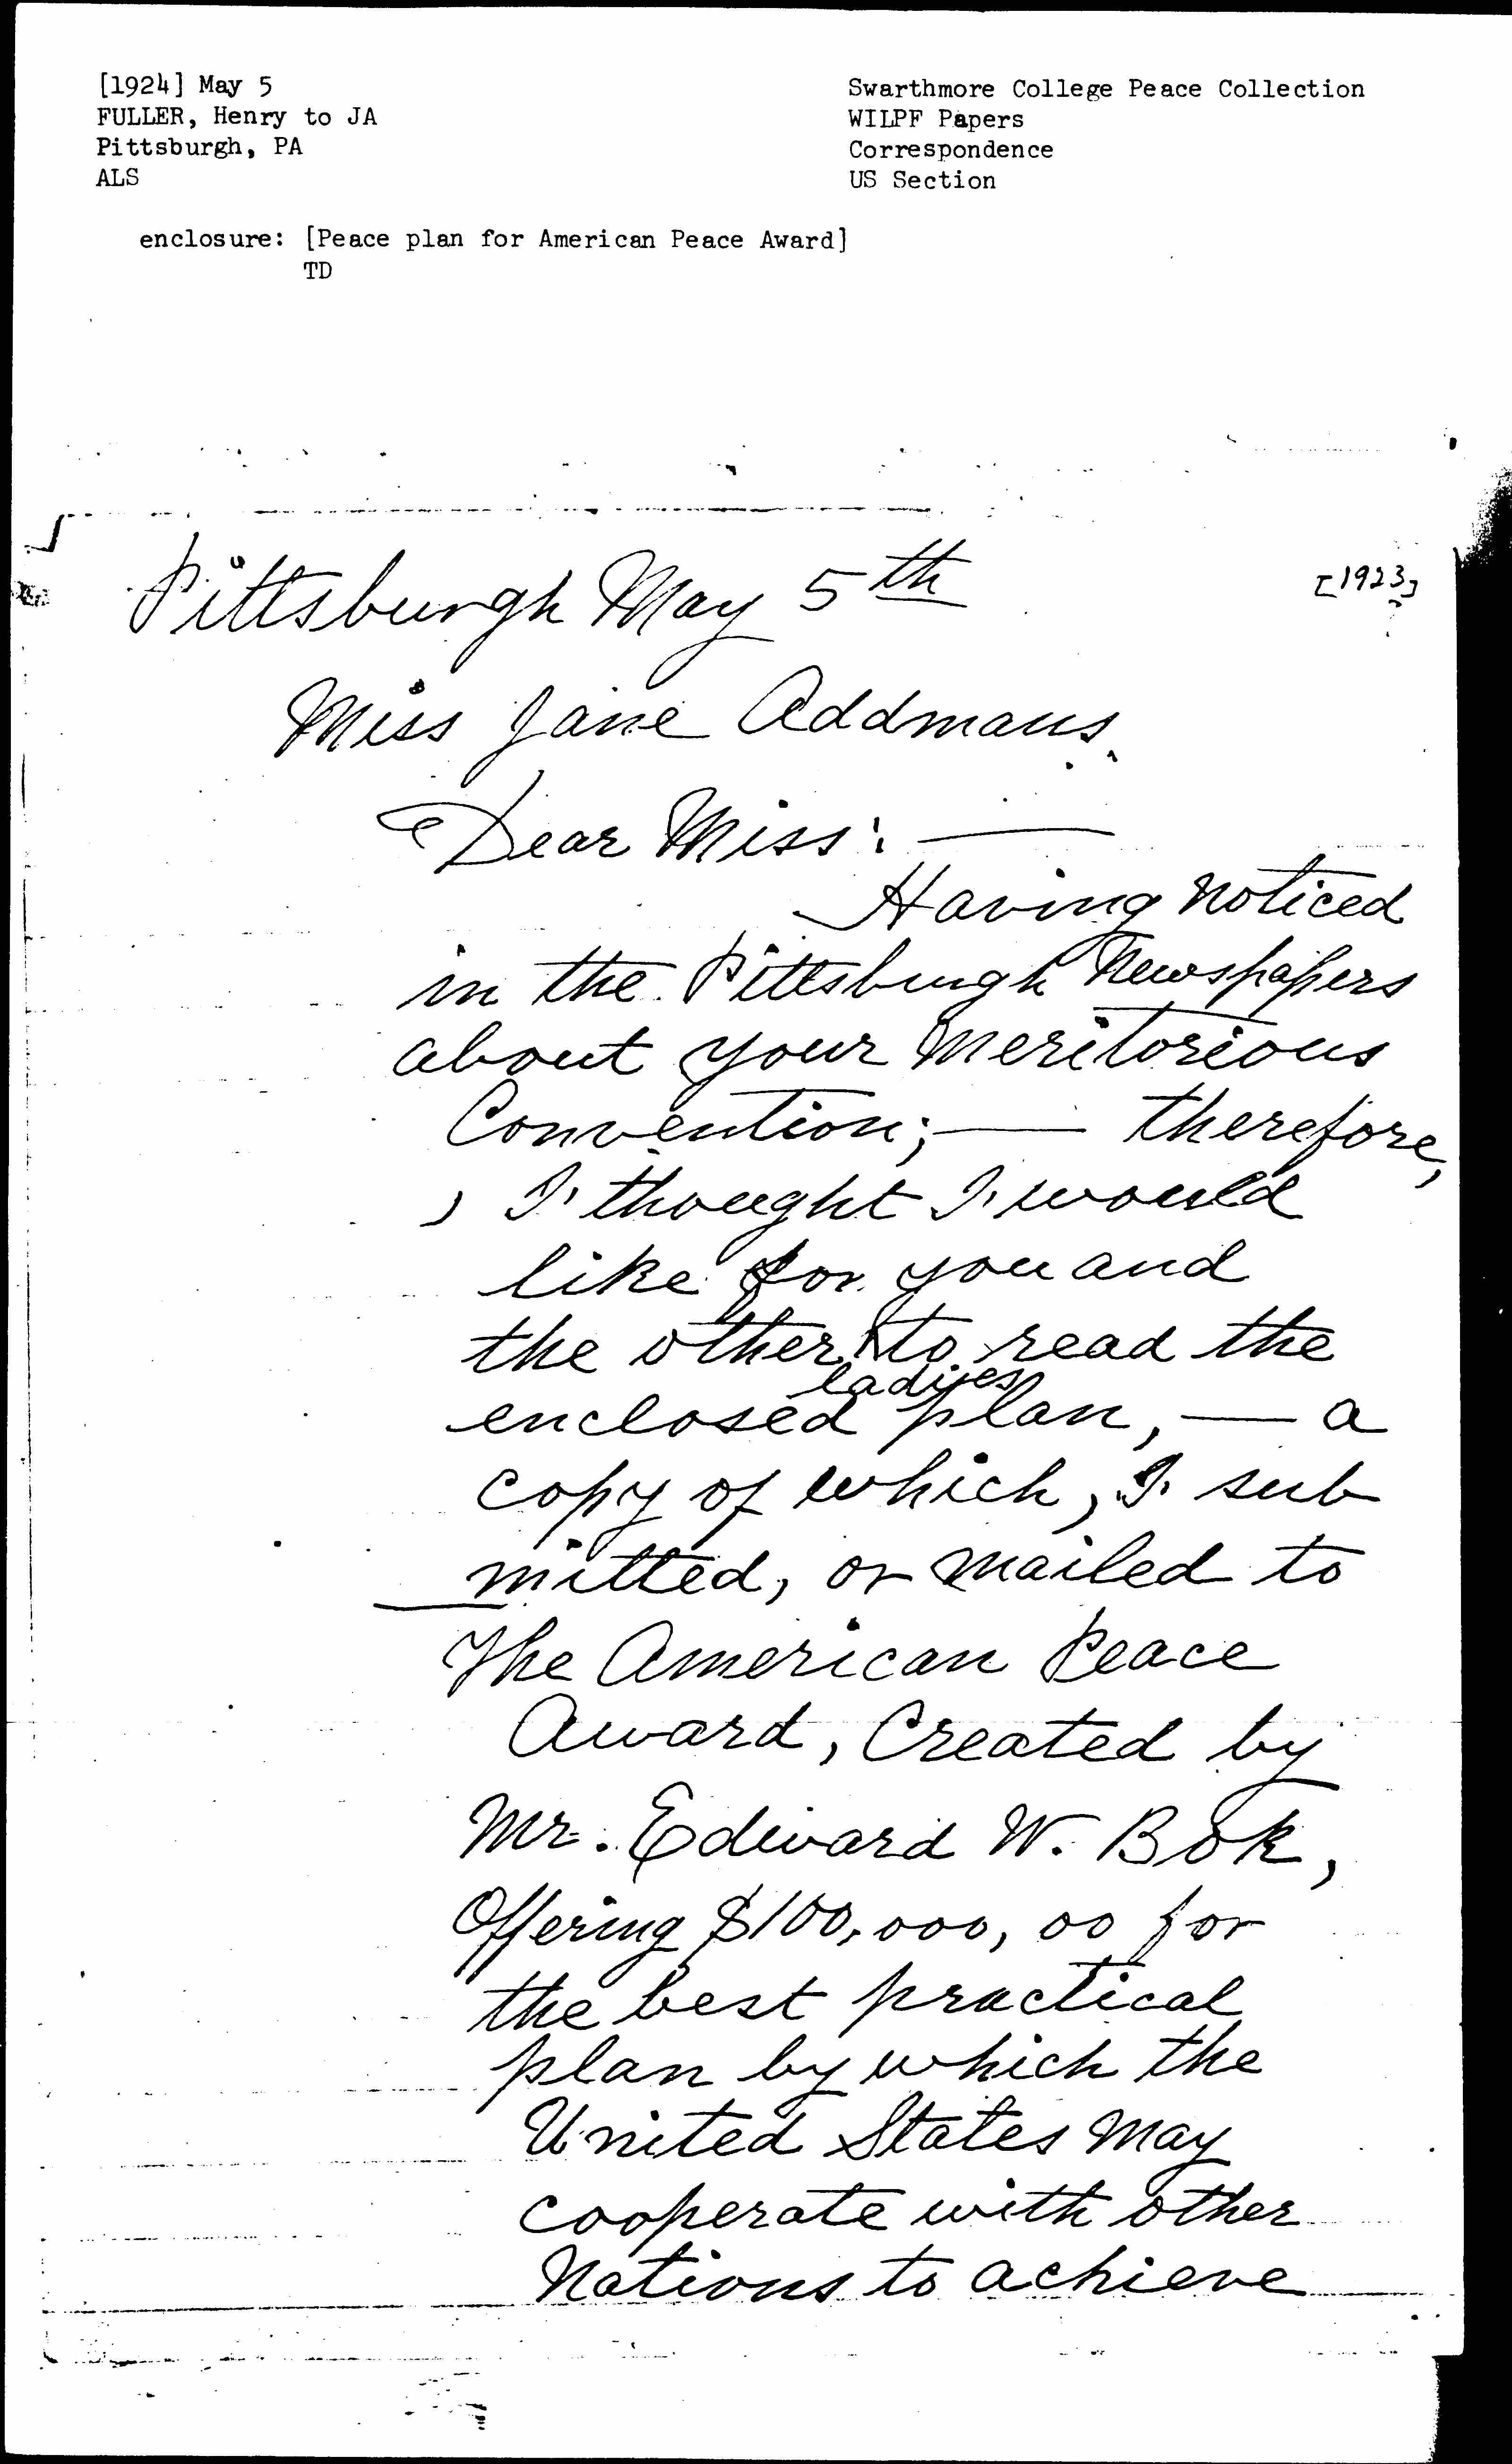 [1924] May 5
FULLER, Henry to JA
Pittsburgh, PA
ALS
enclosure: [Peace plan for American Peace Award]
TD
Swarthmore College Peace Collection
WILPF Papers
Correspondence
US Section
Pittsburgh May 5th
[1923]
?
Miss Jane Addmans.
Dear Miss: —
Having noticed
in the Pittsburgh Newspapers
about your meritorious
Convention; — therefore,
, I thought I would
like for you and
the other to read the
ladyes
enclosed plan, — a
copy of which, I sub
mitted, or mailed to
The American Peace
Award, Created by
Mr. Edward W. Bok,
Offering $100,000,00 for
the best practical
plan by which the
United States may
cooperate with other
Nations to achieve